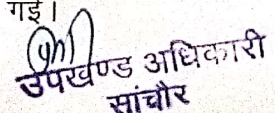 गई।
उपखण्ड अधिकारी
सांचौर